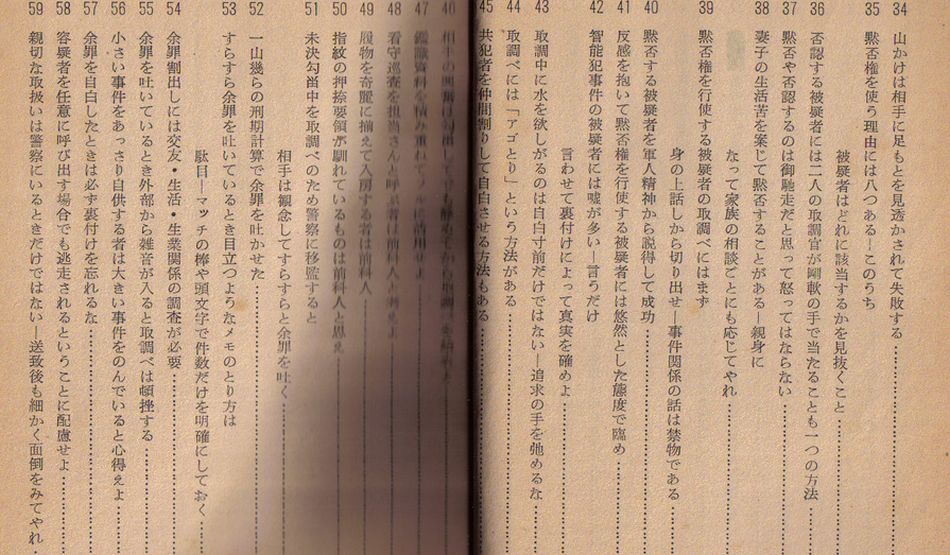 34 山かけは相手に足もとを見透かされて失敗する
35 黙否権を使う理由には八つある―このうち
被疑者はどれに該当するかを見抜くこと
36 否認する被疑者には二人の取調官が剛軟の手で当たることも一つの方法
37 黙否や否認するのは御馳走だと思って怒ってはならない
38 妻子の生活苦を案じて黙否することがある―親身に
なって家族の相談ごとにも応じてやれ
39 黙否権を行使する被疑者の取調べにはまず
身の上話しから切り出せ―事件関係の話は禁物である
40 黙否する被疑者を軍人精神から説得して成功
41 反感を抱いて黙否権を行使する被疑者には悠然とした態度で臨め
42 智能犯事件の被疑者には嘘が多い―言うだけ
言わせて裏付けによって真実を確めよ
43 取調中に水を欲しがるのは自白寸前だけではない―追求の手を弛めるな
44 取調べには「アゴとり」という方法がある
45 共犯者を仲間割りして自白させる方法もある
46
47 鑑識資料を積み重ねて
48 看守巡査を担当さんと呼ぶ者は前科人と考えよ
49 履物を奇麗に揃えて入房する者は前科人
50 指紋の押捺要領が馴れているものは前科人と思え
51 未決勾留中を取調べのため警察に移監すると
相手は観念してすらすらと余罪を吐く
52 一山幾らの刑期計算で余罪を吐かせた
53 すらすら余罪を吐いているとき目立つようなメモのとり方は
駄目―マッチの棒や頭文字で件数だけを明確にしておく
54 余罪割出しには交友・生活・生業関係の調査が必要
55 余罪を吐いているとき外部から雑音が入ると取調べは頓挫する
56 小さい事件をあっさり自供する者は大きい事件をのんでいると心得えよ
57 余罪を自白したときは必ず裏付けを忘れるな
58 容疑者を任意に呼び出す場合でも逃走されるということに配慮せよ
59 親切な取扱いは警察にいるときだけではない―送致後も細かく面倒をみてやれ